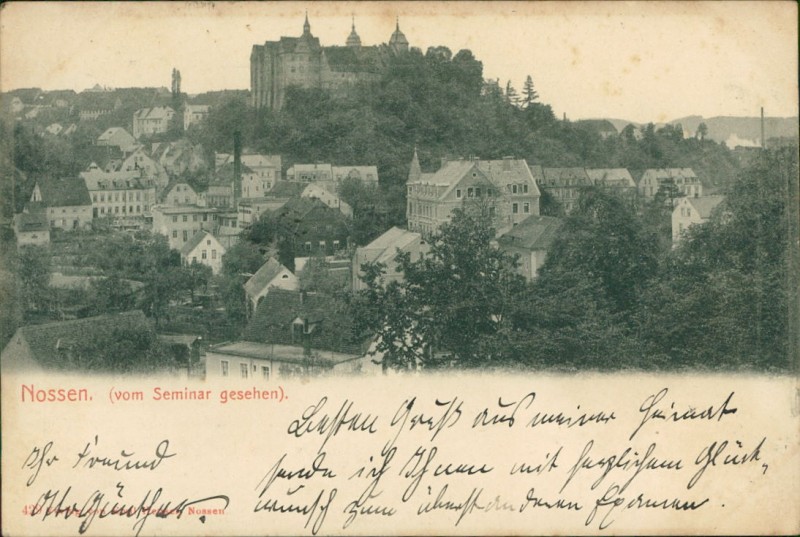 Nossen. (vom Seminar gesehen).
Besten Gruß aus meiner Heimat
sende ich Ihnen mit herzlichem Glück-
wunsch zum überstandenen Examen.
Ihr Freund
Otto Günther.
Nossen